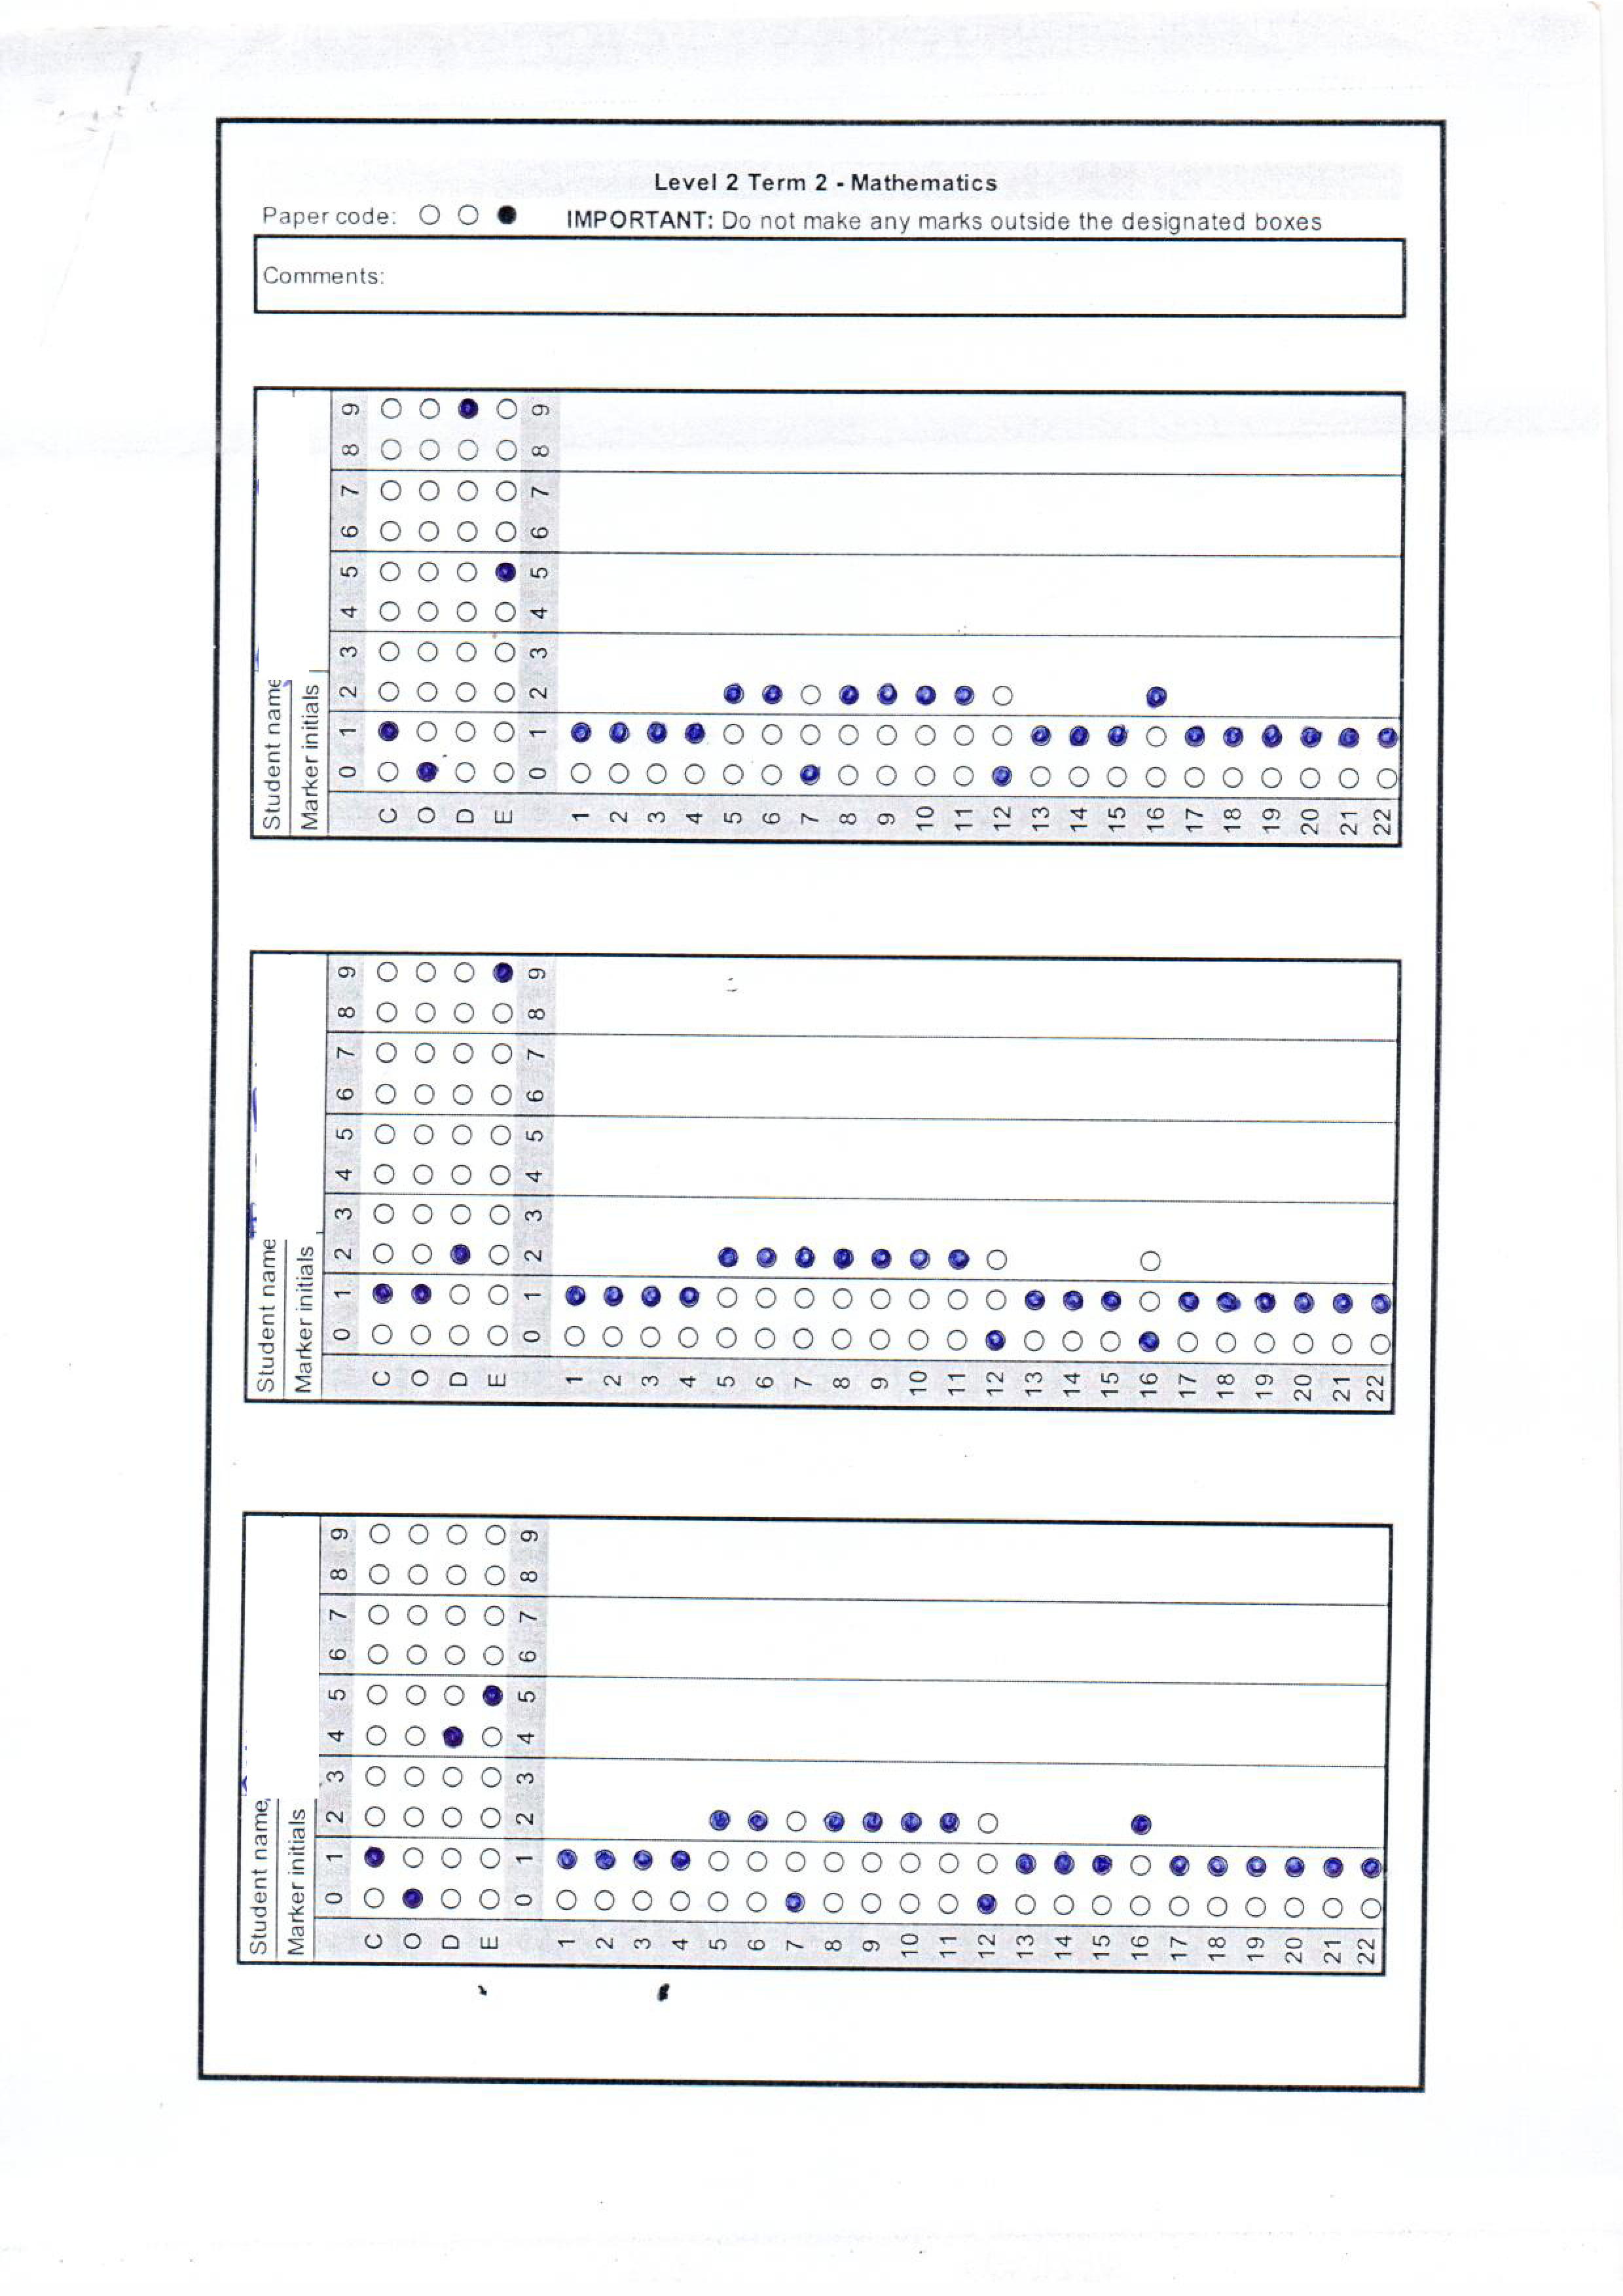 Level 2 Term 2 - Mathematics
Paper code:
IMPORTANT: Do not make any marks outside the designated boxes
Comments:
Student name
Marker initials
0 1 2 3 4 5 6 7 8 9
C
O
D
E
0 1 2 3 4 5 6 7 8 9
1
2
3
4
5
6
7
8
9
10
11
12
13
14
15
16
17
18
19
20
21
22
Student name
Marker initials
0 1 2 3 4 5 6 7 8 9
C
O
D
E
0 1 2 3 4 5 6 7 8 9
1
2
3
4
5
6
7
8
9
10
11
12
13
14
15
16
17
18
19
20
21
22
Student name
Marker initials
0 1 2 3 4 5 6 7 8 9
C
O
D
E
0 1 2 3 4 5 6 7 8 9
1
2
3
4
5
6
7
8
9
10
11
12
13
14
15
16
17
18
19
20
21
22